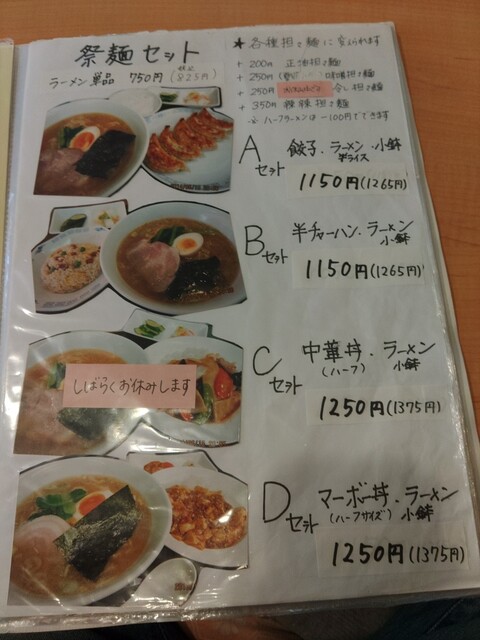 祭麺セット
ラーメン単品 750円 税込(825円)
★各種担々麺に変えられます
+200円 正油担々麺
+250円 味噌担々麺
+250円 冷し担々麺
+350円 辣辣担々麺
※ハーフラーメンは-100円でできます
Aセット 餃子、ラーメン・小鉢
半ライス
1150円(1265円)
Bセット 半チャーハン、ラーメン
小鉢
1150円(1265円)
しばらくお休みします
Cセット 中華丼・ラーメン
(ハーフ) 小鉢
1250円(1375円)
Dセット マーボー丼、ラーメン
(ハーフサイズ) 小鉢
1250円(1375円)